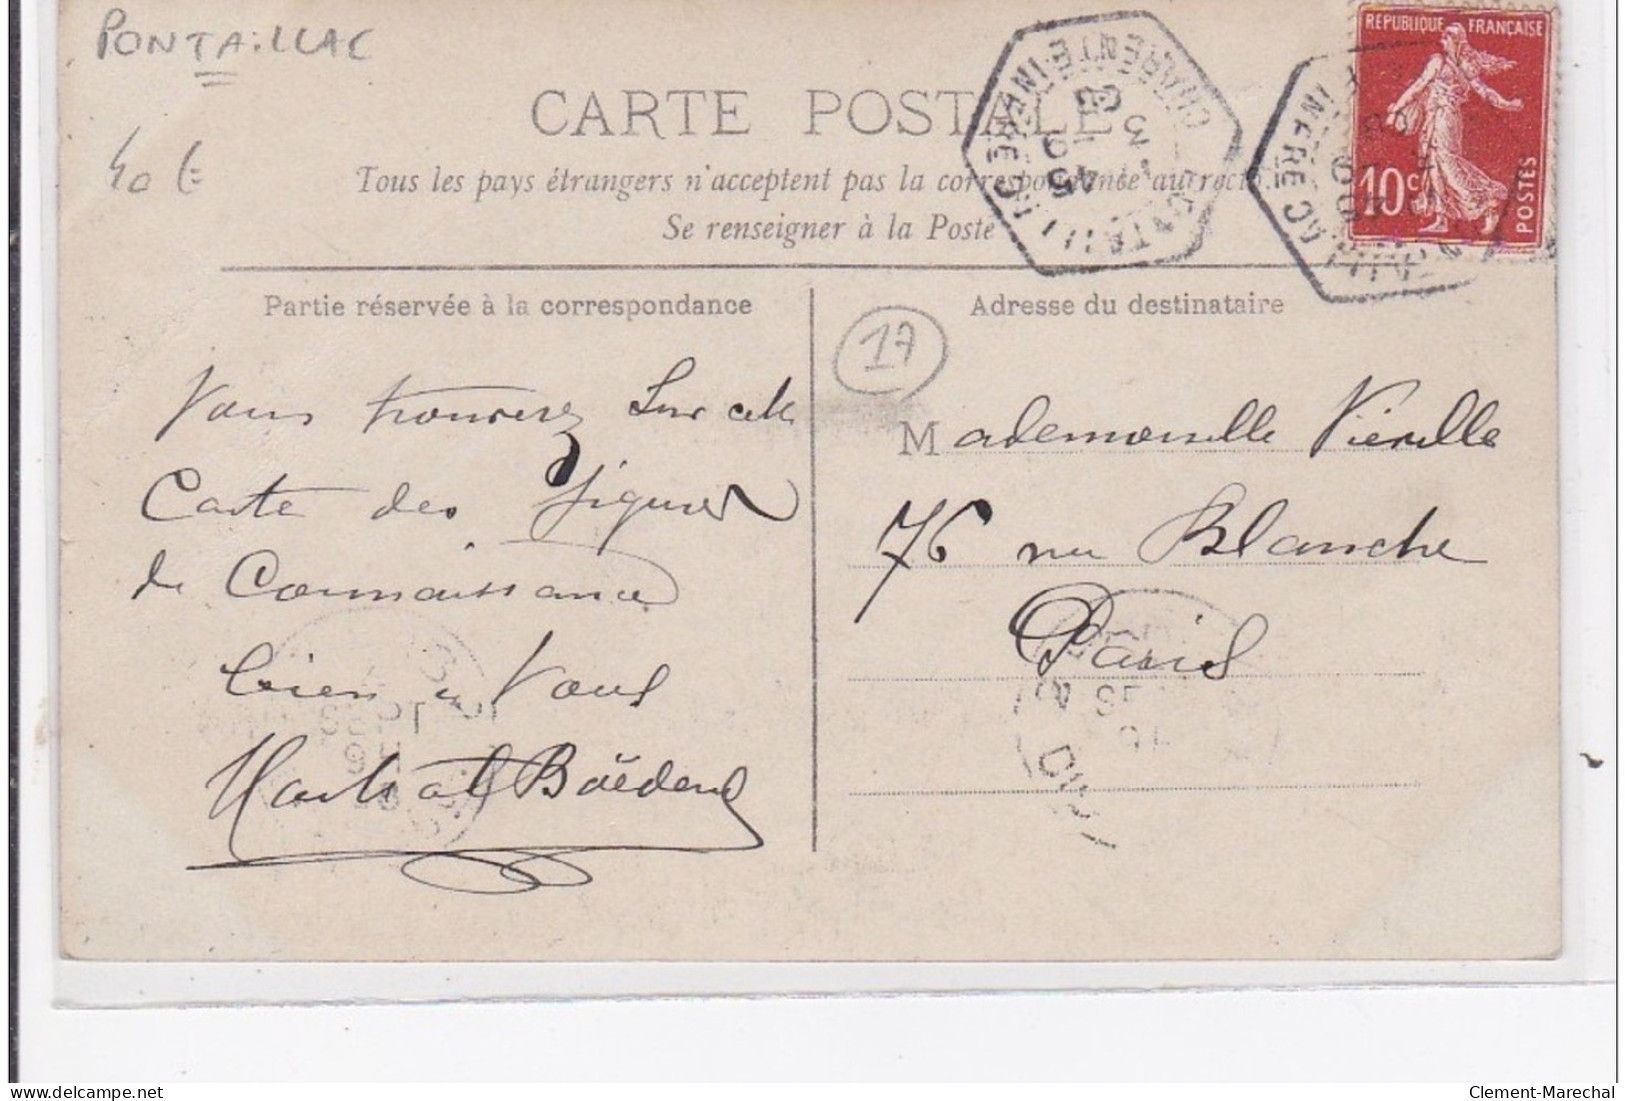 PONTAILLAC
40 €
CARTE POSTALE
Tous les pays étrangers n'acceptent pas la correspondance au recto.
Se renseigner à la Poste
RÉPUBLIQUE FRANÇAISE
10 c
POSTES
CHARENTE INFRE
Partie réservée à la correspondance
Adresse du destinataire
17
Vous trouverez Sur cette
Carte des figures
de Connaissance
bien a Vous
Boëdens
Mademoiselle Vierelle
76 rue Blanche
Paris
Clement-Marechal